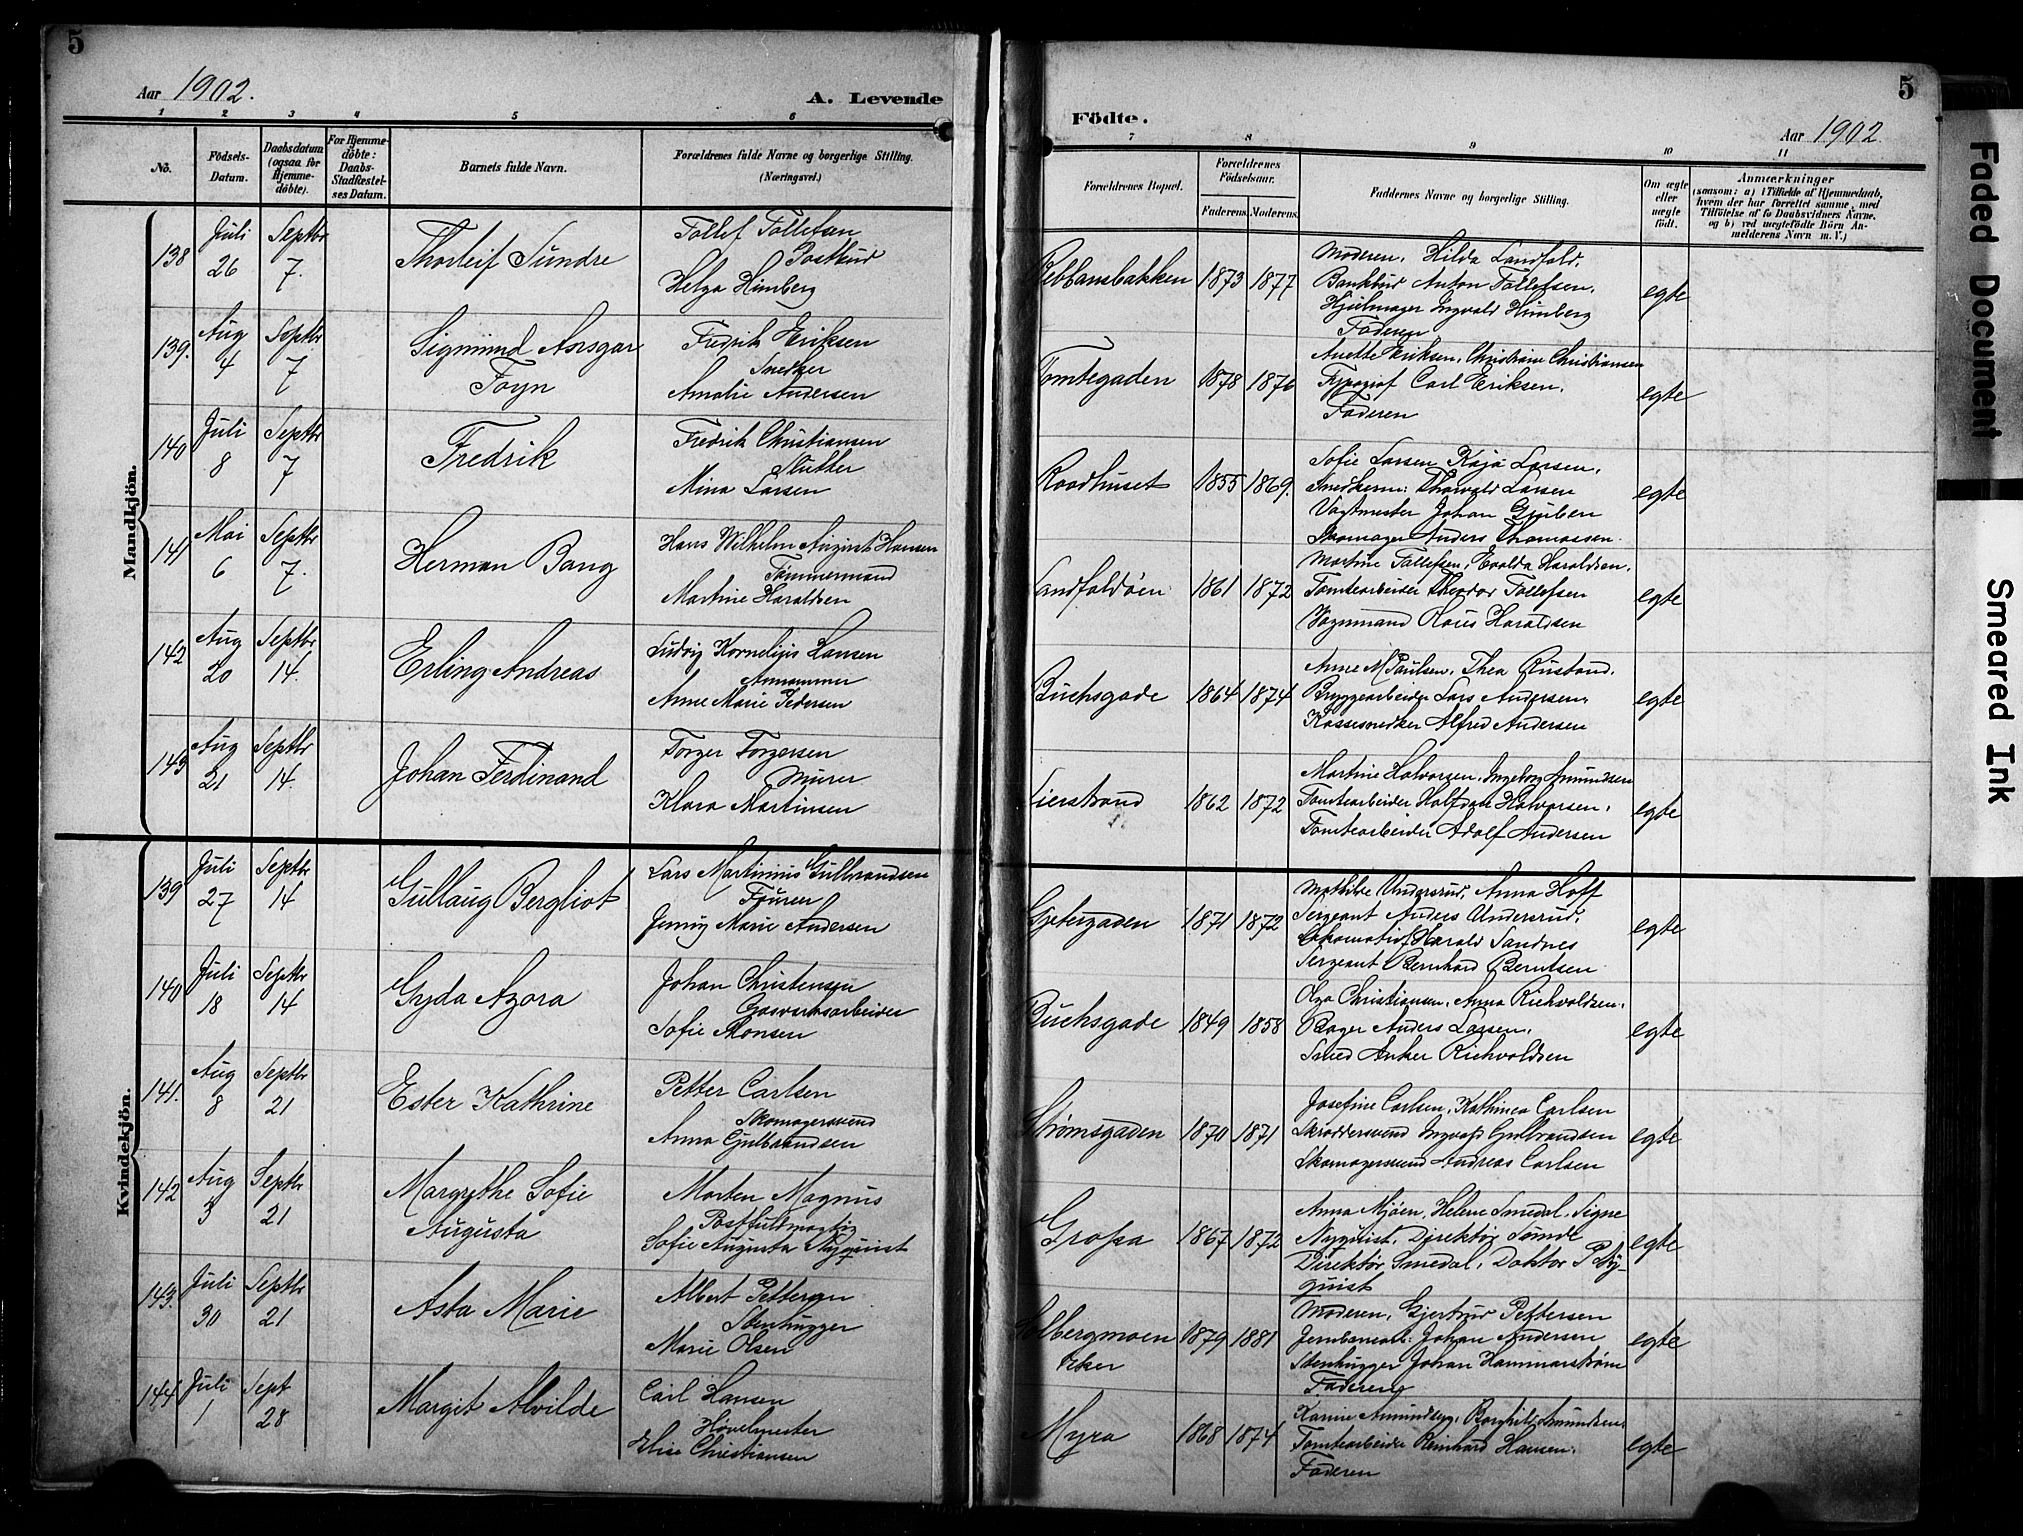 5
Aar 1902.
A. Levende
1 2 3 4 5 6
No.
Födsels-
Datum.
Daabsdatum
(ogsaa for
Hjemme-
döbte).
For Hjemme-
döbte:
Daabs-
Stadfæstel-
ses Datum.
Barnets fulde Navn.
Forældrenes fulde Navne og borgerlige Stilling.
(Næringsvei.)
Mandkjön.
138 Juli 26 Septbr 7.
Thorleif Sundre
Tollef Tollefsen
Postbud
Helga Himberg
139. Aug 4 Septbr 7
Sigmund Ansgar
Foyn
Fredrik Eriksen
Snedker
Amalie Andersen
140 Juli 8 Septbr 7
Fredrik
Fredrik Christiansen
Slutter
Mina Larsen
141 Mai 6 Septbr 7.
Herman Bang
Hans Wilhelm August Hansen
Tømmermand
Martine Haraldsen
142 Aug 20 Septbr 14.
Erling Andreas
Ludvig Kornelius Hansen
Anne Marie Pedersen
143 Aug 21 Septbr 14.
Johan Ferdinand
Torger Torgersen
Murer
Klara Martinsen
Kvindekjön.
139 Juli 27 Septbr 14
Gullaug Bergliot
Lars Martinius Gulbrandsen
Fourer
Jenny Marie Andersen
140 Juli 18 Septbr 14
Gyda Azora
Johan Christensen
Gasværksarbeider
Sofie Monsen
141. Aug 8 Septbr 21
Ester Kathrine
Petter Carlsen
Skomagersvend
Anna Gulbrandsen
142 Aug 3 Septbr 21
Margrethe Sofie
Augusta
Morten Magnus
Postfuldmægtig
Sofie Augusta Nyquist
143. Juli 30 Septbr 21
Asta Marie
Albert Pettersen
Stenhugger
Marie Olsen
144 Juli 1 Sept 28
Margit Alvilde
Carl Hansen
Høvelmester
Elise Christiansen
5
Födte.
Aar 1902.
7 8 9 10 11
Forældrenes Bopæl.
Forældrenes
Födselsaar.
Faderens. Moderens.
Faddernes Navne og borgerlige Stilling.
Om ægte
eller
uægte
födt.
Anmærkninger
(saasom: a) i Tilfælde af Hjemmedaab,
hvem der har forrettet samme, med
Tilföielse af to Daabsvidners Navne.
og b) ved uægtefödte Börn An-
melderens Navn m. V.)
1873 1877
Moderen, Hilda Landfald,
Bankbud Anton Tollefsen,
Hjulmager Ingvald Himberg
Faderen
egte
Tomtegaden 1878 1876
Anette Eriksen, Christiane Christiansen
Typograf Carl Eriksen,
Faderen
egte
Raadhuset 1855 1869.
Sofie Larsen, Kaja Larsen,
Snedkerm: Thorvald Larsen
Vagtmester Johan Gruben
Skomager Anders Thomassen.
egte
Landfaldøen 1861 1872
Martine Tollefsen, Evalda Haraldsen,
Tomtearbeider Theodor Tollefsen
Vognmand Claus Haraldsen
egte
Buchsgade 1864 1874
Anne M Paulsen, Thea Rustand,
Bryggearbeider Lars Andersen,
Kassesnedker Alfred Andersen
egte
Lierstrand 1862 1872
Martine Halvorsen, Ingeborg Amundsen
Tomtearbeider Halfdan Halvorsen,
Tomtearbeider Adolf Andersen
egte
Gjetergaden 1871 1872
Mathilde Undersrud, Anna Hoff
Sergeant Anders Undersrud,
Lokomotivf Harald Sandnes
Sergeant Bernhard Berntsen
egte
Buchsgade 1849 1858
Olga Christiansen, Anna Richvoldsen,
Bager Anders Larsen,
Smed Anker Richvoldsen
egte
Strømsgaden 1870 1871
Josefine Carlsen, Kathinca Carlsen
Skræddersvend Ingvald Gulbrandsen
Skomagersvend Andreas Carlsen
egte
Grossa 1867 1872
Anna Mjøen, Helene Smedal, Signe
Nyquist, Direktør Sømde
Direktør Smedal, Doktor P Ny-
quist
egte
Solbergmoen
Eker
1879 1881
Moderen, Gjertrud Pettersen
Jernbanearb: Johan Andersen
Stenhugger Johan Hammarstrøm
Faderen
egte
Myra 1868 1874
Karine Amundsen, Borghild Amundsen,
Tomtearbeider Reinhard Hansen,
Faderen
egte
Faded Document
Smeared Ink